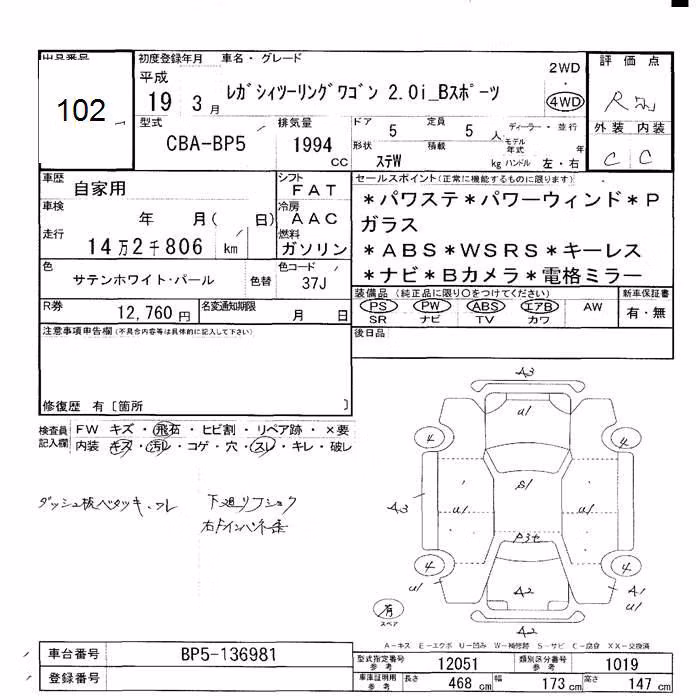 出品番号
102
初度登録年月 車名・グレード
平成
19 3月
レガシィツーリングワゴン 2.0i_Bスポーツ
2WD
4WD
評価点
R
外装 内装
C C
型式
CBA-BP5
排気量
1994 cc
ドア 5 定員 5 人
ディーラー・並行
形状 ステW
積載 kg
モデル年式 年
ハンドル 左・右
車歴
自家用
車検
年 月( 日)
走行
14万2千806 km
シフト
FAT
冷房
AAC
燃料
ガソリン
セールスポイント(正常に機能するものに限ります)
*パワステ*パワーウィンド*P
ガラス
*ABS*WSRS*キーレス
*ナビ*Bカメラ*電格ミラー
色
サテンホワイト・パール
色替
色コード
37J
R券
12,760円
名変通知期限
月 日
装備品(純正品に限り○をつけてください)
PS PW ABS エアB AW
SR ナビ TV カワ
新車保証書
有・無
注意事項申告欄(不具合内容等は具体的に記入して下さい)
後日品
修復歴 有 [箇所 ]
検査員記入欄
FW キズ・飛石・ヒビ割・リペア跡・×要
内装 キズ・汚レ・コゲ・穴・スレ・キレ・破レ
ダッシュ板ベタツキ・スレ
A3
U1
4 4
S1
A3 U1 U1
4 4
U1 A2 A1
U1
A2
有
スペア
A-キズ E-エクボ U-凹み W-補修跡 S-サビ C-腐食 XX-交換済
車台番号
BP5-136981
登録番号
型式指定番号参考 12051
類別区分番号参考 1019
車庫証明用参考 長さ 468cm 幅 173cm 高さ 147cm